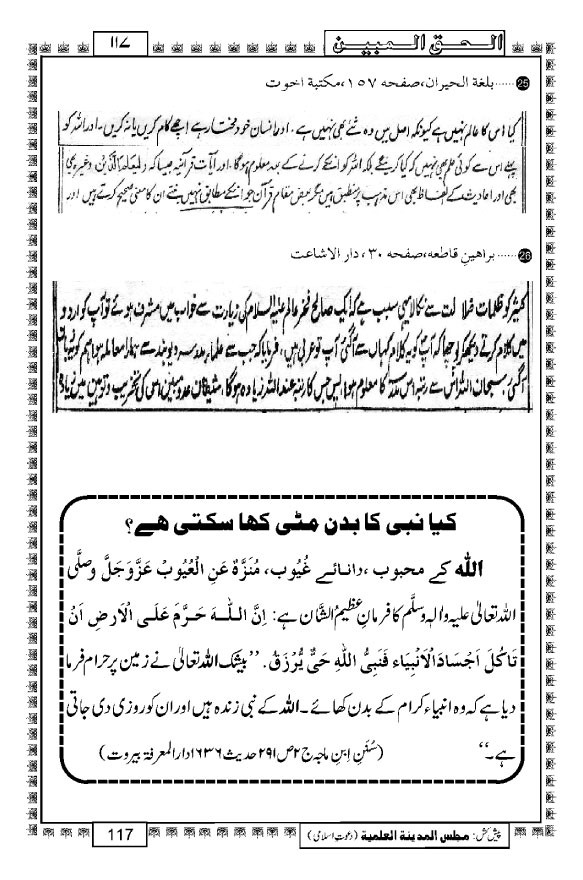 الحق المبین
۱۱۷
25 ......بلغة الحیران،صفحہ ۱۵۷،مکتبة اخوت
کیا اس کا عالم نہیں ہے کیونکہ اصل میں وہ شئے بھی نہیں ہے۔ اور انسان خود مختار ہے اچھے کام کریں یا نہ کریں۔ اور اللہ کو
پہلے اس سے کوئی علم بھی نہیں کہ کیا کریں گے بلکہ اللہ کو انکے کرنے کے بعد معلوم ہوگا۔ اور آیات قرآنیہ جیسا کہ ولیعلم الذین وغیرہ بھی
بھی اور احادیث کے لفاظ بھی اس مذہب پر منطبق ہیں مگر بعض مقام قرآن جو انکے مطابق نہیں بنتے ان کا معنی صحیح کرتے ہیں اور
26 ......براھینِ قاطعہ،صفحہ ۳۰،دار الاشاعت
کثیر کو ظلمات ضلالت سے نکالا یہی سبب ہے کہ ایک صالح فخر عالم علیہ السلام کی زیارت سے خواب میں مشرف ہوئے تو آپ کو اردو
میں کلام کرتے دیکھ کر پوچھا کہ آپ کو یہ کلام کہاں سے آگئی آپ تو عربی ہیں، فرمایا کہ جب سے علماء مدرسہ دیوبند سے ہمارا معاملہ ہوا ہم کو یہ زبان
آگئی، سبحان اللہ اس سے رتبہ اس مدرسہ کا معلوم ہوا، پس جس کا رتبہ عند اللہ زیادہ ہوگا، شیطان عدو مبین اس کی تخریب و توہین میں زیادہ
کیا نبی کا بدن مٹی کھا سکتی ھے؟
اللہ کے محبوب ،دانائے غُیُوب، مُنَزَّہٌ عَنِ الْعُیُوب عَزَّوَجَلَّ وصلَّی
اللہ تعالٰی علیہ والہٖ وسلَّم کا فرمانِ عظیمُ الشَّان ہے: اِنَّ اللّٰہَ حَرَّمَ عَلَی الْاَرضِ اَنْ
تَاکُلَ اَجْسَادَ الْاَنْبِیَاء فَنَبِیُّ اللّٰہِ حَیٌّ یُّرْزَقُ. ’’بیشک اللہ تعالیٰ نے زمین پر حرام فرما
دیا ہے کہ وہ انبیاء کرام کے بدن کھائے۔ اللہ کے نبی زندہ ہیں اور ان کو روزی دی جاتی
ہے۔‘‘ (سُنَنِ اِبنِ ماجہ ج۲ص۲۹۱ حدیث ۱۶۳۶ دار المعرفۃ بیروت)
117
پیش کش: مجلس المدینۃ العلمیۃ (دعوتِ اسلامی)